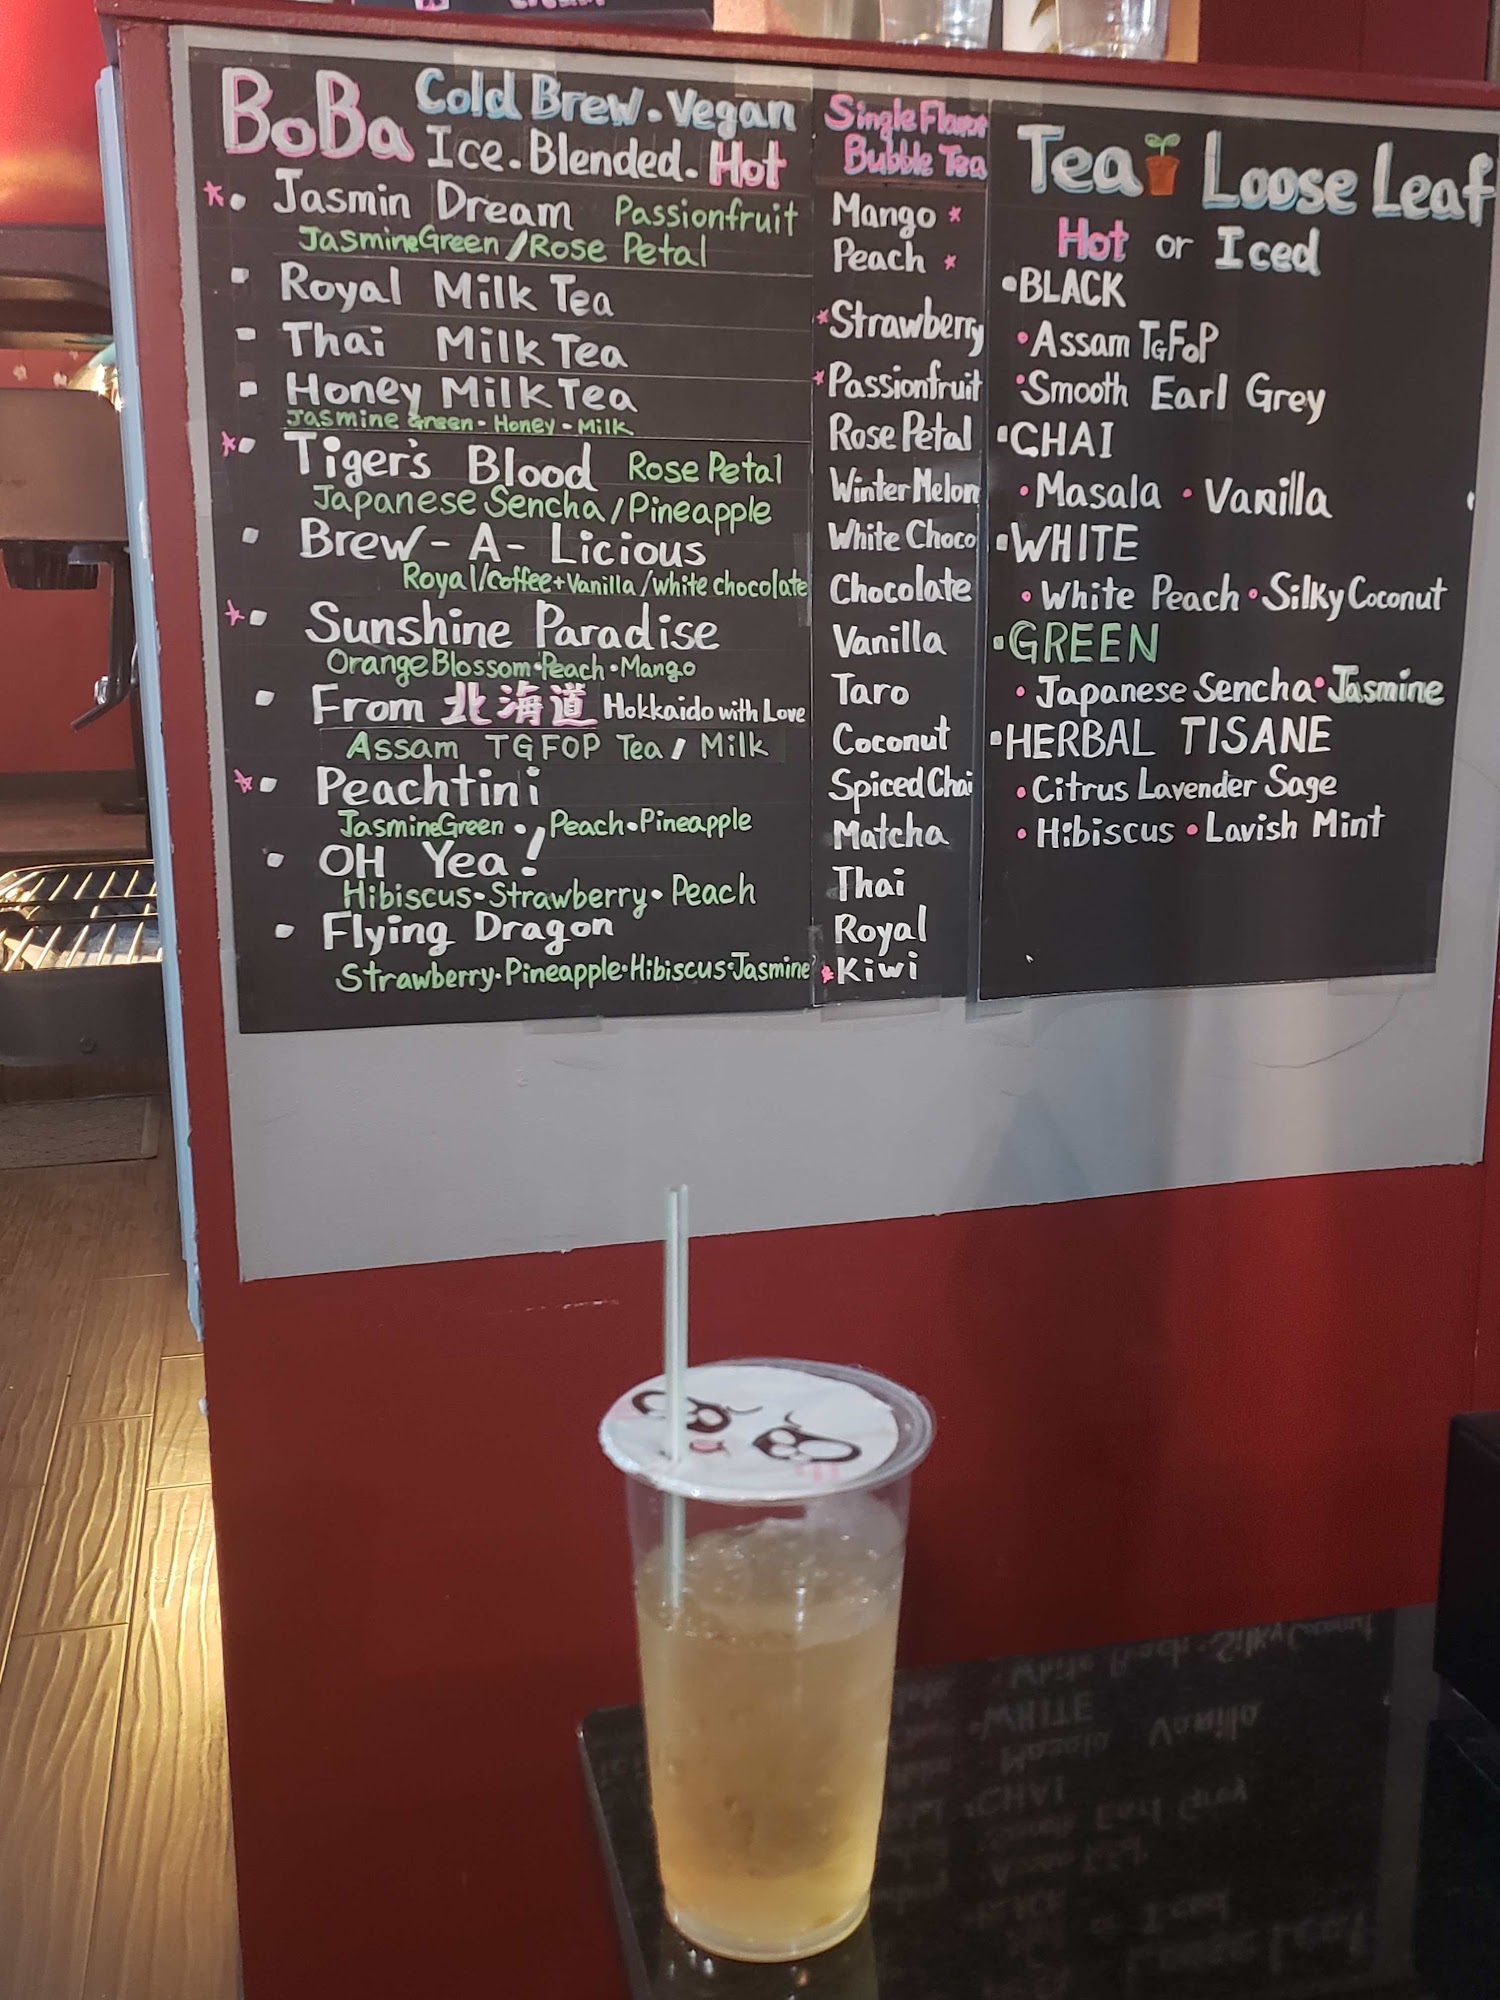 BoBa Cold Brew. Vegan
Ice. Blended. Hot
Jasmin Dream Passionfruit
Jasmine Green / Rose Petal
Royal Milk Tea
Thai Milk Tea
Honey Milk Tea
Jasmine Green - Honey - Milk
Tiger's Blood Rose Petal
Japanese Sencha / Pineapple
Brew - A - Licious
Royal/coffee+Vanilla/white chocolate
Sunshine Paradise
Orange Blossom • Peach • Mango
From 北海道 Hokkaido with Love
Assam TGFOP Tea / Milk
Peachtini
Jasmine Green • / Peach • Pineapple
OH Yea!
Hibiscus • Strawberry • Peach
Flying Dragon
Strawberry • Pineapple • Hibiscus • Jasmine
Single Flavor
Bubble Tea
Mango
Peach
Strawberry
Passionfruit
Rose Petal
Winter Melon
White Choco
Chocolate
Vanilla
Taro
Coconut
Spiced Chai
Matcha
Thai
Royal
Kiwi
Tea Loose Leaf
Hot or Iced
• BLACK
• Assam TGFOP
• Smooth Earl Grey
• CHAI
• Masala • Vanilla
• WHITE
• White Peach • Silky Coconut
• GREEN
• Japanese Sencha • Jasmine
• HERBAL TISANE
• Citrus Lavender Sage
• Hibiscus • Lavish Mint